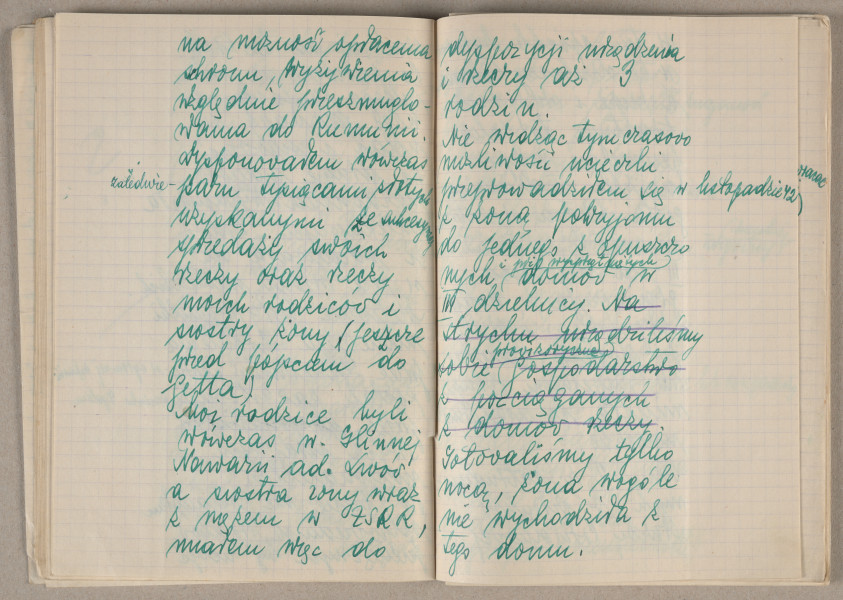 na możność opłacenia
schronu, wyżywienia
względnie przeszmuglo-
wania do Rumunii.
Dysponowałem wówczas
zaledwie -
paru tysiącami złotych
uzyskanymi ze sukcesywnej
sprzedaży swoich
rzeczy oraz rzeczy
moich rodziców i
siostry żony (jeszcze
przed pójściem do
getta)
Moi rodzice byli
wówczas w Glinnej
Nawarii ad. Lwów
a siostra żony wraz
z mężem w ZSRR,
miałem więc do
dyspozycji urządzenia
i rzeczy aż 3
rodzin.
Nie widząc tymczasowo
możliwości ucieczki
przeprowadziłem się w listopadzie 42
z żoną potryjomu
do jednego z opuszczo
nych i domów w
III dzielnicy. Na
strychu urządziliśmy
sobie prowizoryczne gospodarstwo
z pościąganych
z domów rzeczy.
Gotowaliśmy tylko
nocą, żona wogóle
nie wychodziła z
tego domu.